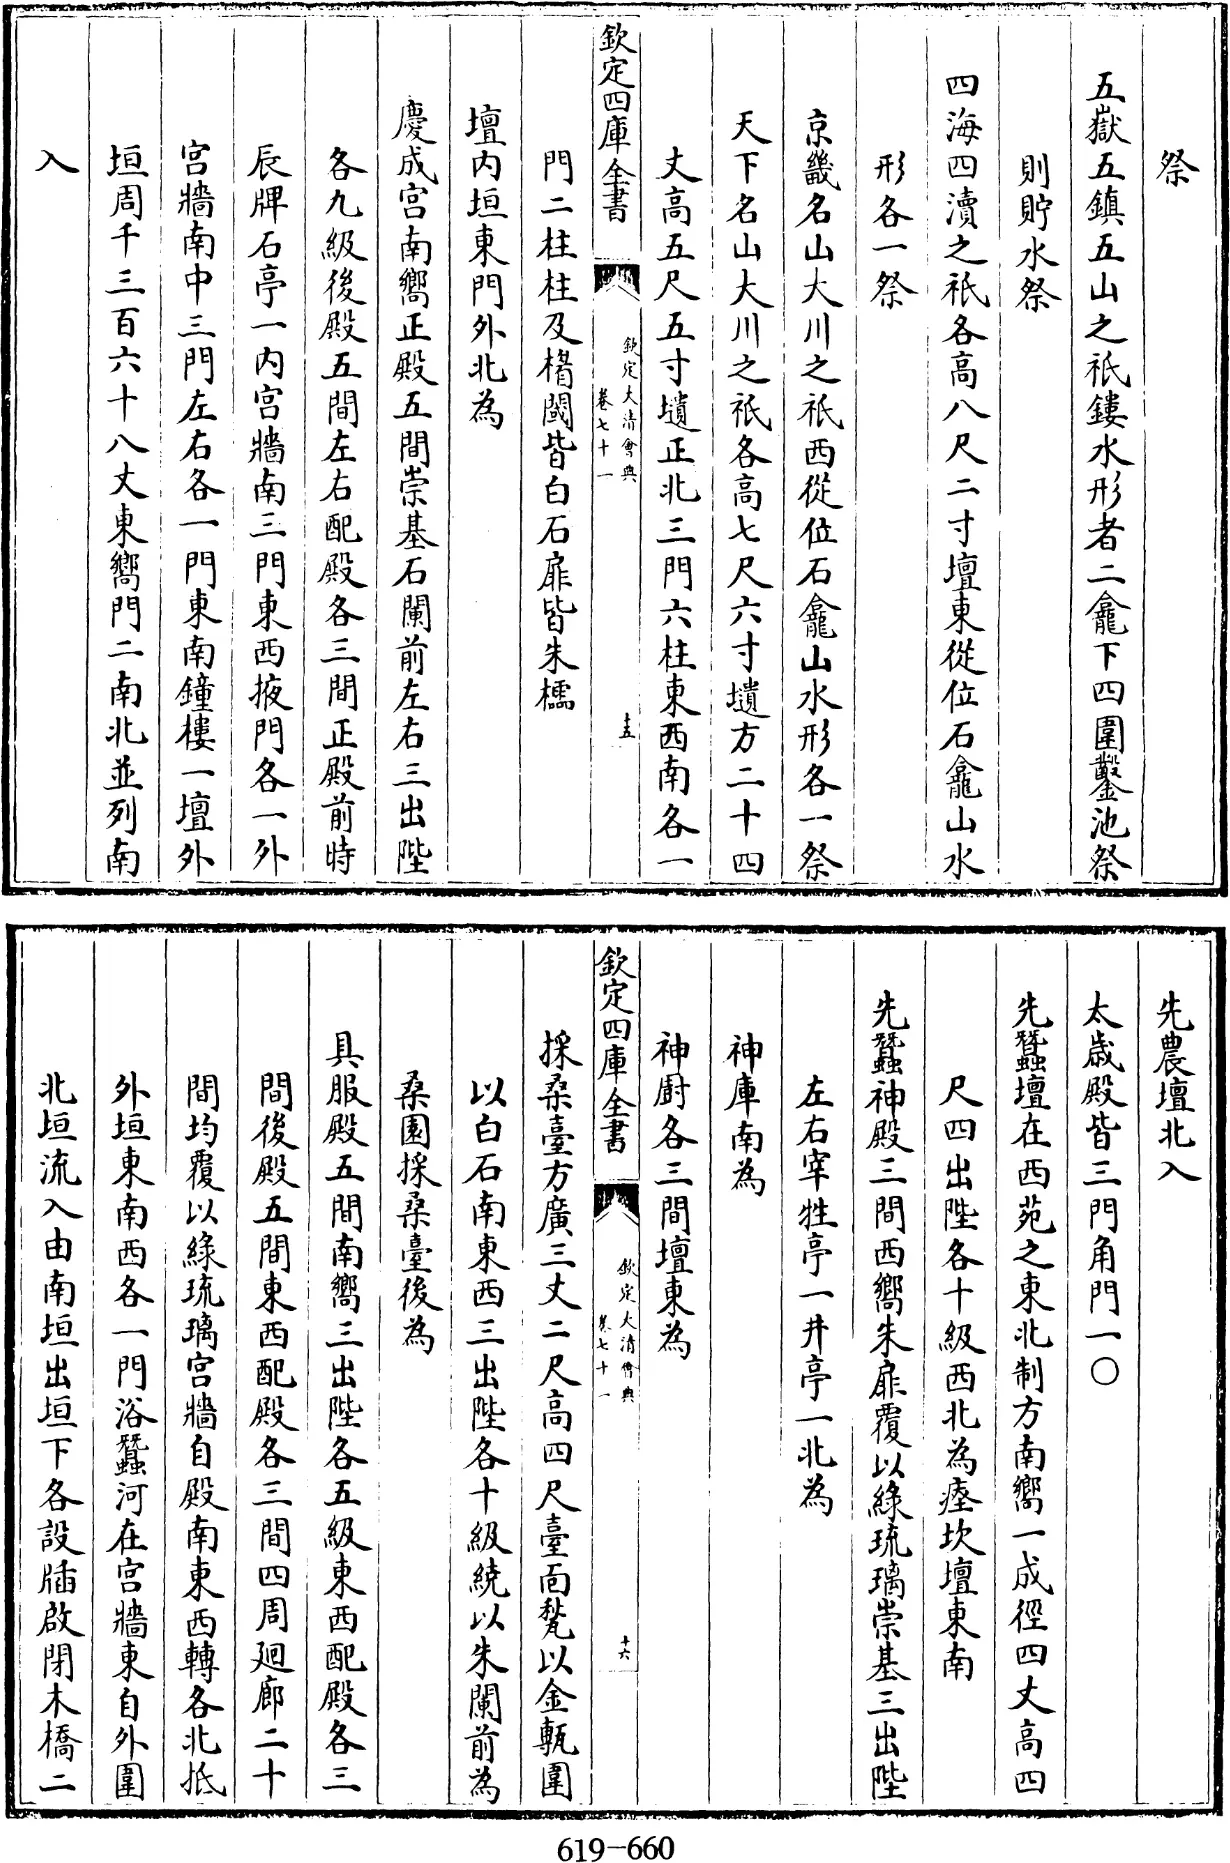 祭
五嶽五鎮五山之祇鏤水形者二龕下四圍鑿池祭
則貯水祭
四海四瀆之祇各高八尺二寸壇東從位石龕山水
形各一祭
京畿名山大川之祇西從位石龕山水形各一祭
天下名山大川之祇各高七尺六寸壝方二十四
丈高五尺五寸壝正北三門六柱東西南各一
欽定四庫全書
欽定大清會典
卷七十一
十五
門二柱柱及楣閾皆白石扉皆朱櫺
壇内垣東門外北為
慶成宫南嚮正殿五間崇基石闌前左右三出陛
各九級後殿五間左右配殿各三間正殿前時
辰牌石亭一内宫牆南三門東西掖門各一外
宫牆南中三門左右各一門東南鐘樓一壇外
垣周千三百六十八丈東嚮門二南北並列南
入
先農壇北入
太歲殿皆三門角門一〇
先蠶壇在西苑之東北制方南嚮一成徑四丈高四
尺四出陛各十級西北為瘞坎壇東南
先蠶神殿三間西嚮朱扉覆以綠琉璃崇基三出陛
左右宰牲亭一井亭一北為
神庫南為
神廚各三間壇東為
欽定四庫全書
欽定大清會典
卷七十一
十六
採桑臺方廣三丈二尺高四尺臺面甃以金甎圍
以白石南東西三出陛各十級繞以朱闌前為
桑園採桑臺後為
具服殿五間南嚮三出陛各五級東西配殿各三
間後殿五間東西配殿各三間四周廻廊二十
間均覆以綠琉璃宫牆自殿南東西轉各北抵
外垣東南西各一門浴蠶河在宫牆東自外圍
北垣流入由南垣出垣下各設牐啟閉木橋二
619-660